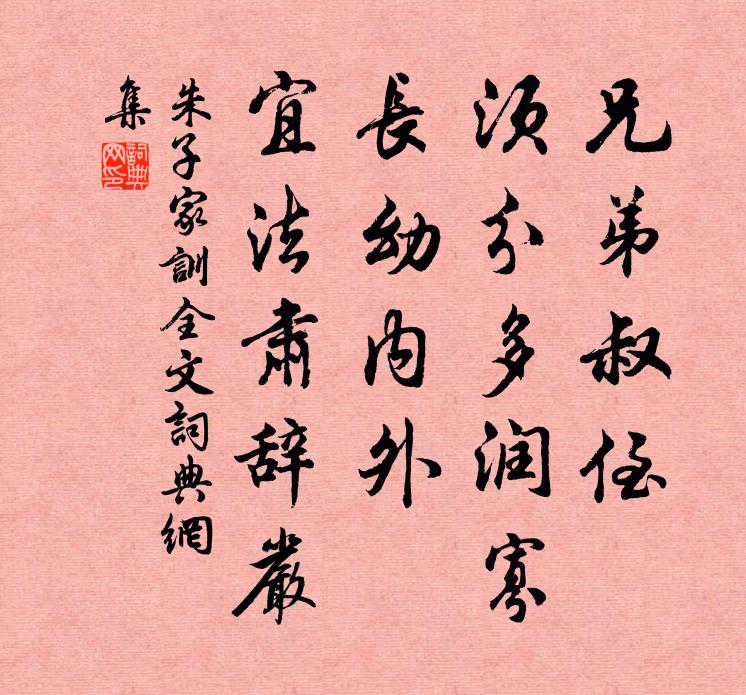 兄弟叔侄
须分多润寡
長幼内外
宜法肅辞嚴
朱子家訓全文詞典網
集
詞典网印